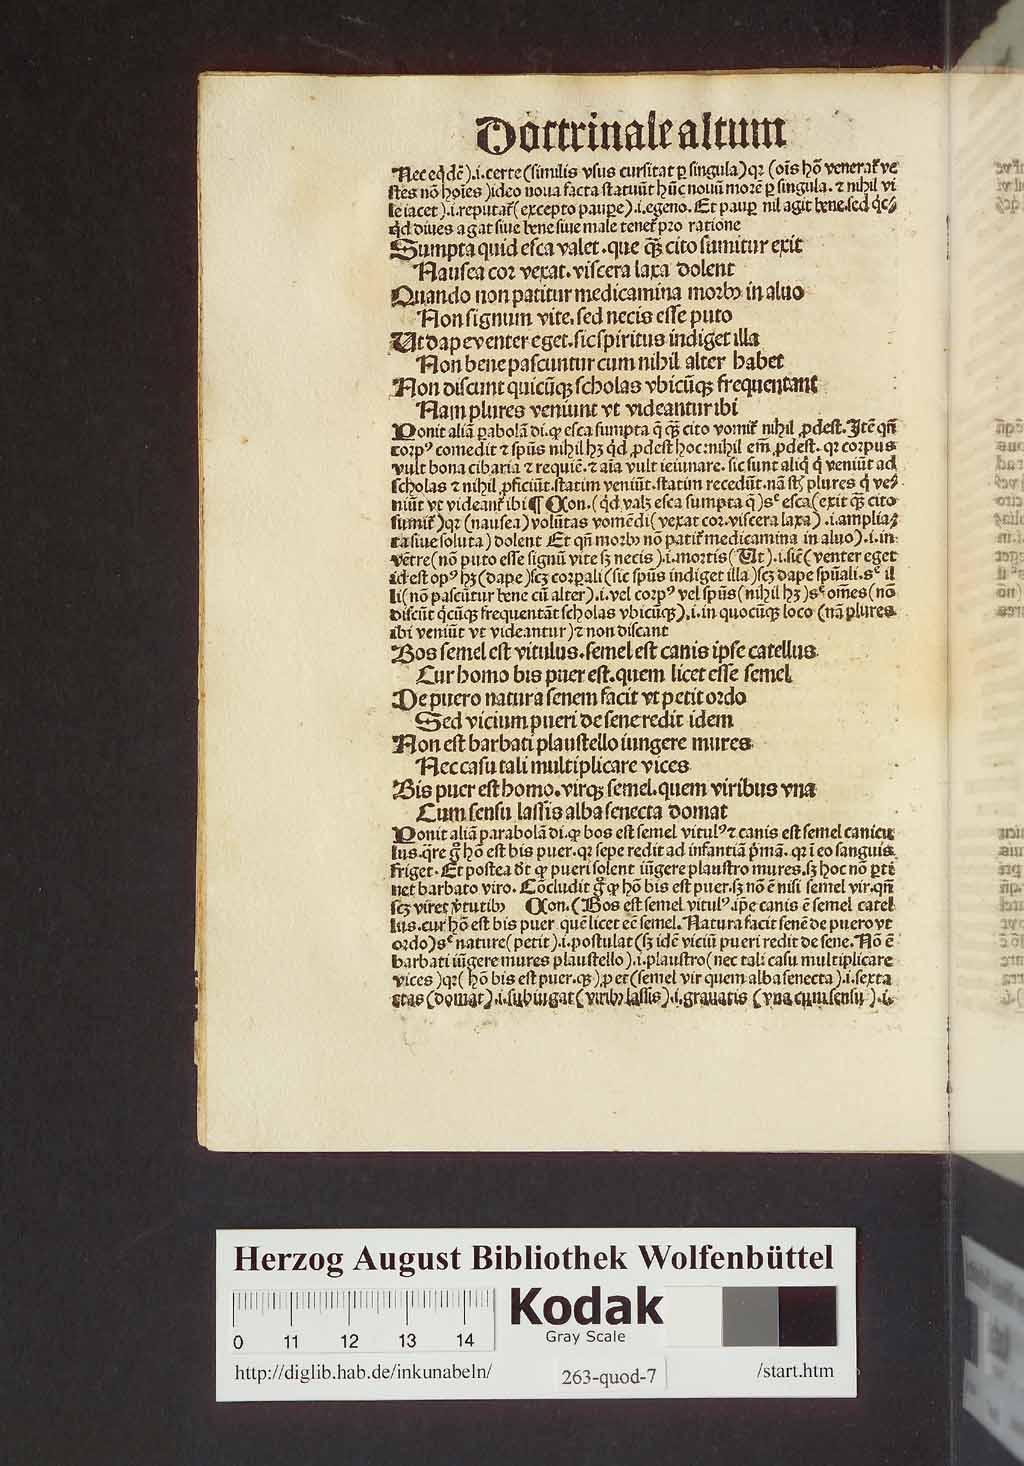 Doctrinale altum
Nec eq̄dē).i.certe(similis vsus cursitat ꝑ singula)qꝛ (oīs hō venerat᷑ ve
stes nō hoīes )ideo noua facta statuūt hūc nouū morē ꝑ singula. ⁊ nihil vi
le iacet).i.reputat᷑(excepto paupe).i.egeno. Et paup nil agit bene.sed
qd diues agat siue bene siue male tenet᷑ pro ratione
Sumpta quid esca valet.que qƺ cito sumitur exit
Nausea cor vexat.viscera laxa dolent
Quando non patitur medicamina morbꝰ in aluo
Non signum vite.sed necis esse puto
Ut dape venter eget.sic spiritus indiget illa
Non bene pascuntur cum nihil alter habet
Non discunt quicūqƺ scholas vbicūqƺ frequentant
Nam plures veniunt vt videantur ibi
Ponit aliā ꝑabolā di.ꝙ esca sumpta q̄ qƺ cito vomit᷑ nihil ꝓdest.Itē qn̄
corpꝰ comedit ⁊ spūs nihil hꝫ qd ꝓdest hoc:nihil em̄ ꝓdest.qꝛ corpus
vult bona cibaria ⁊ requiē.⁊ aīa vult ieiunare.sic sunt aliq̇ q̇ veniūt ad
scholas ⁊ nihil ꝓficiūt.statim veniūt.statim recedūt.nā plures q̇ ve⸗
niūt vt videant᷑ ibi¶ Con.(qd valꝫ esca sumpta q̄)sꝫ esca(exit qƺ cito
sumit᷑)qꝛ(nausea)volūtas vomēdi(vexat cor.viscera laxa) .i.amplia⸗
ta siue soluta)dolent Et qn̄ morbꝰ nō patit᷑ medicamina in aluo).i.in
vētre(nō puto esse signū vite sꝫ necis).i.mortis(Ut).i.sic(venter eget
id est opꝰ hꝫ(dape)scꝫ corꝑali(sic spūs indiget illa)scꝫ dape spūali. il
li(nō pascūtur bene cū alter).i.vel corpꝰ vel spūs(nihil hꝫ) om̄es(nō
discūt q̇cūqƺ frequentāt scholas vbicūqƺ).i.in quocūqƺ loco (nā plures
ibi veniūt vt videantur)⁊ non discant
Bos semel est vitulus.semel est canis ipse catellus
Cur homo bis puer est.quem licet esse semel
De puero natura senem facit vt petit ordo
Sed vicium pueri de sene redit idem
Non est barbati plaustello iungere mures
Nec casu tali multiplicare vices
Bis puer est homo.virqƺ semel.quem viribus vna
Cum sensu lassis alba senecta domat
Ponit aliā parabolā di.ꝙ bos est semel vitulꝰ⁊ canis est semel canicu
lus.qre hō est bis puer.qꝛ sepe redit ad infantiā pmā.qꝛ ī eo sanguis
friget. Et postea dt ꝙ pueri solent iūgere plaustro mures.sꝫ hoc nō ꝑti
net barbato viro. Cōcludit ꝙ hō bis est puer.sꝫ nō ē nisi semel vir.qn̄
scꝫ viret vtutibꝰ Con.(Bos est semel vitulꝰ.ipe canis ē semel catel
lus.cur hō est bis puer quē licet eē semel. Natura facit senē de puero vt
ordo) nature(petit).i.postulat(sꝫ idē viciū pueri redit de sene. Nō ē
barbati iūgere mures plaustello).i.plaustro(nec tali casu multiplicare
vices)qꝛ( hō bis est puer.qƺ)ꝓ et(semel vir quem alba senecta).i.sexta
etas(domat).i.subiugat(viribꝰ lassis).i.grauatis (vna cum sensu).i.
Herzog August Bibliothek Wolfenbüttel
Kodak
Gray Scale
0 11 12 13 14
http://diglib.hab.de/inkunabeln/
263-quod-7
/start.htm